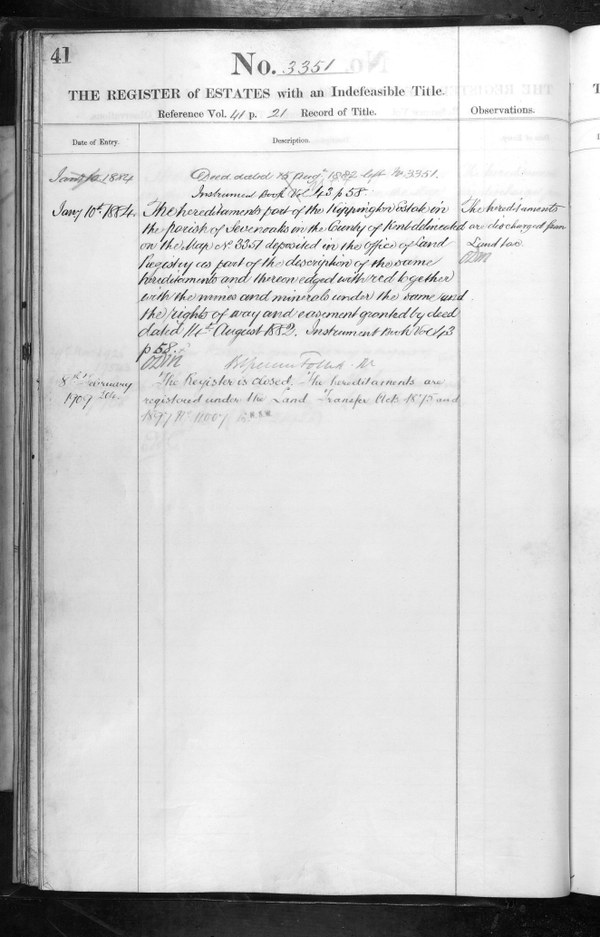 41
No. 3351
THE REGISTER of ESTATES with an Indefeasible Title.
Reference Vol. 41 p. 21 Record of Title.
Observations.
Date of Entry.
Description.
1884
Deed dated 15 Augt 1882 left No 3351.
Instrument Book Vol 43 p 58.
Jany 10th 1884.
The hereditaments part of the Kippington Estate in
the parish of Sevenoaks in the County of Kent delineated
on the Map No 3351 deposited in the office of Land
Registry as part of the description of the same
hereditaments and thereon edged with red together
with the mines and minerals under the same and
the rights of way and easement granted by deed
dated 14th August 1882. Instrument Book Vol 43
p 58.
The hereditaments
are discharged from
Land tax
8th February
1909
The Register is closed. The hereditaments are
registered under the Land Transfer Acts 1875 and
1897 No